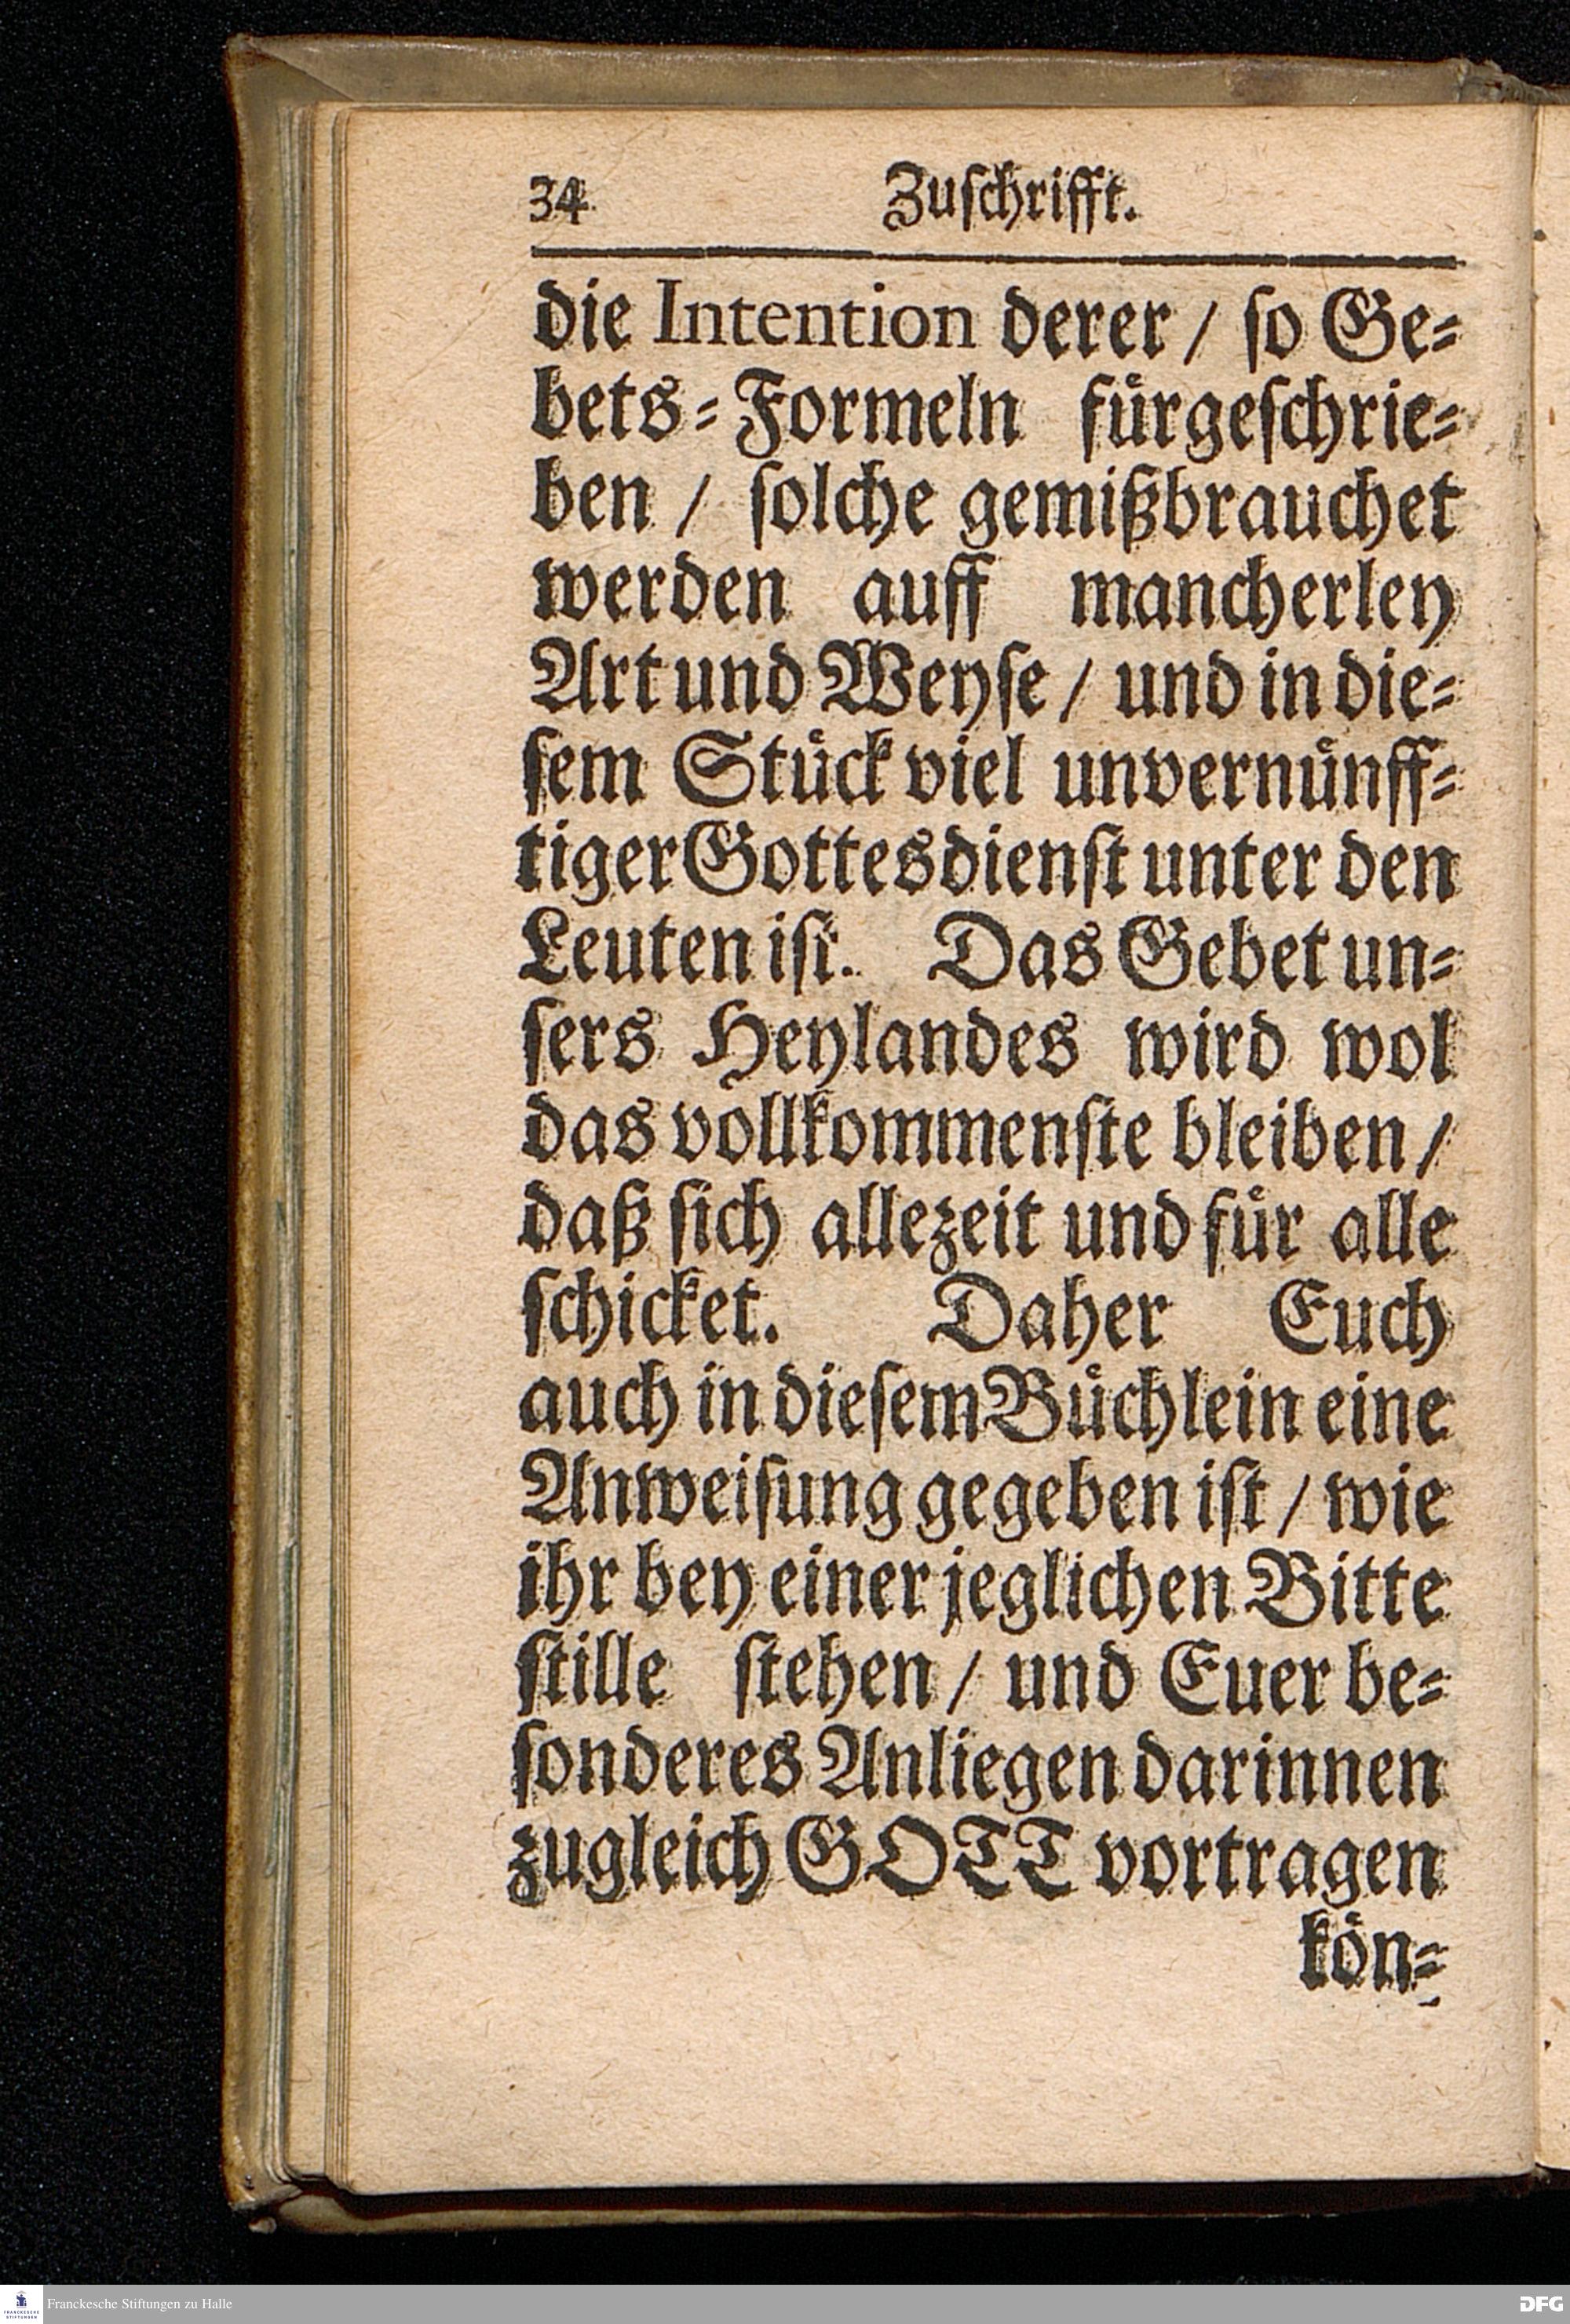 34 Zuſchrifft.
die Intention derer / ſo Ge⸗
bets⸗Formeln fuͤrgeſchrie⸗
ben / ſolche gemißbrauchet
werden auff mancherley
Art und Weyſe / und in die⸗
ſem Stuͤck viel unvernuͤnff⸗
tiger Gottesdienſt unter den
Leuten iſt. Das Gebet un⸗
ſers Heylandes wird wol
das vollkommenſte bleiben /
daß ſich allezeit und fuͤr alle
ſchicket. Daher Euch
auch in dieſem Buͤchlein eine
Anweiſung gegeben iſt / wie
ihr bey einer jeglichen Bitte
ſtille ſtehen / und Euer be⸗
ſonderes Anliegen darinnen
zugleich GOTT vortragen
koͤn⸗
FRANCKESCHE STIFTUNGEN
Franckesche Stiftungen zu Halle
DFG